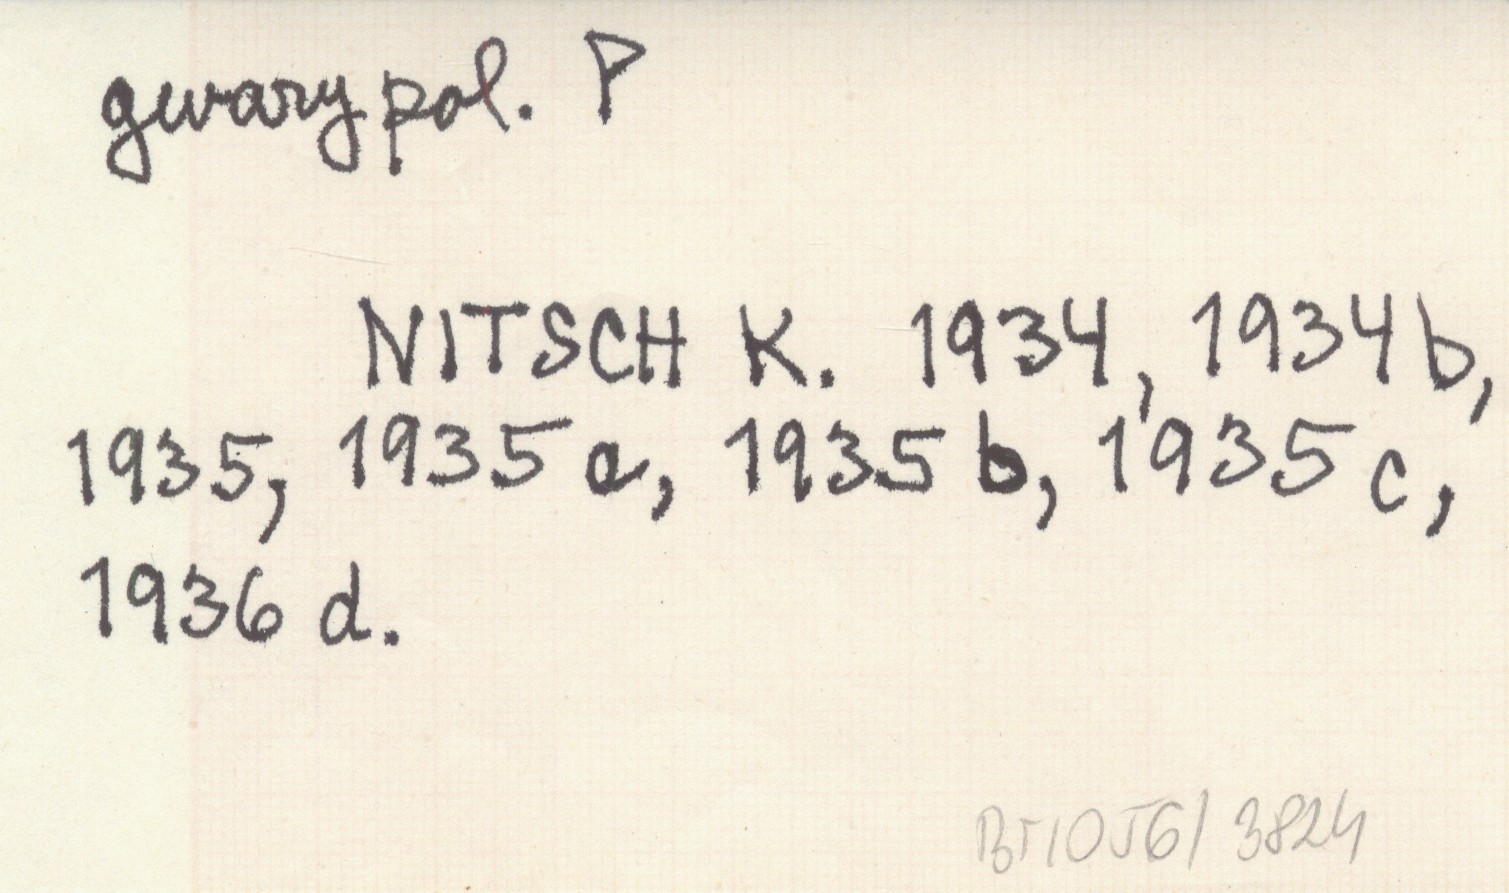 gwary pol. P
NITSCH K. 1934, 1934 b,
1935, 1935 a, 1935 b, 1935 c,
1936 d.
3824